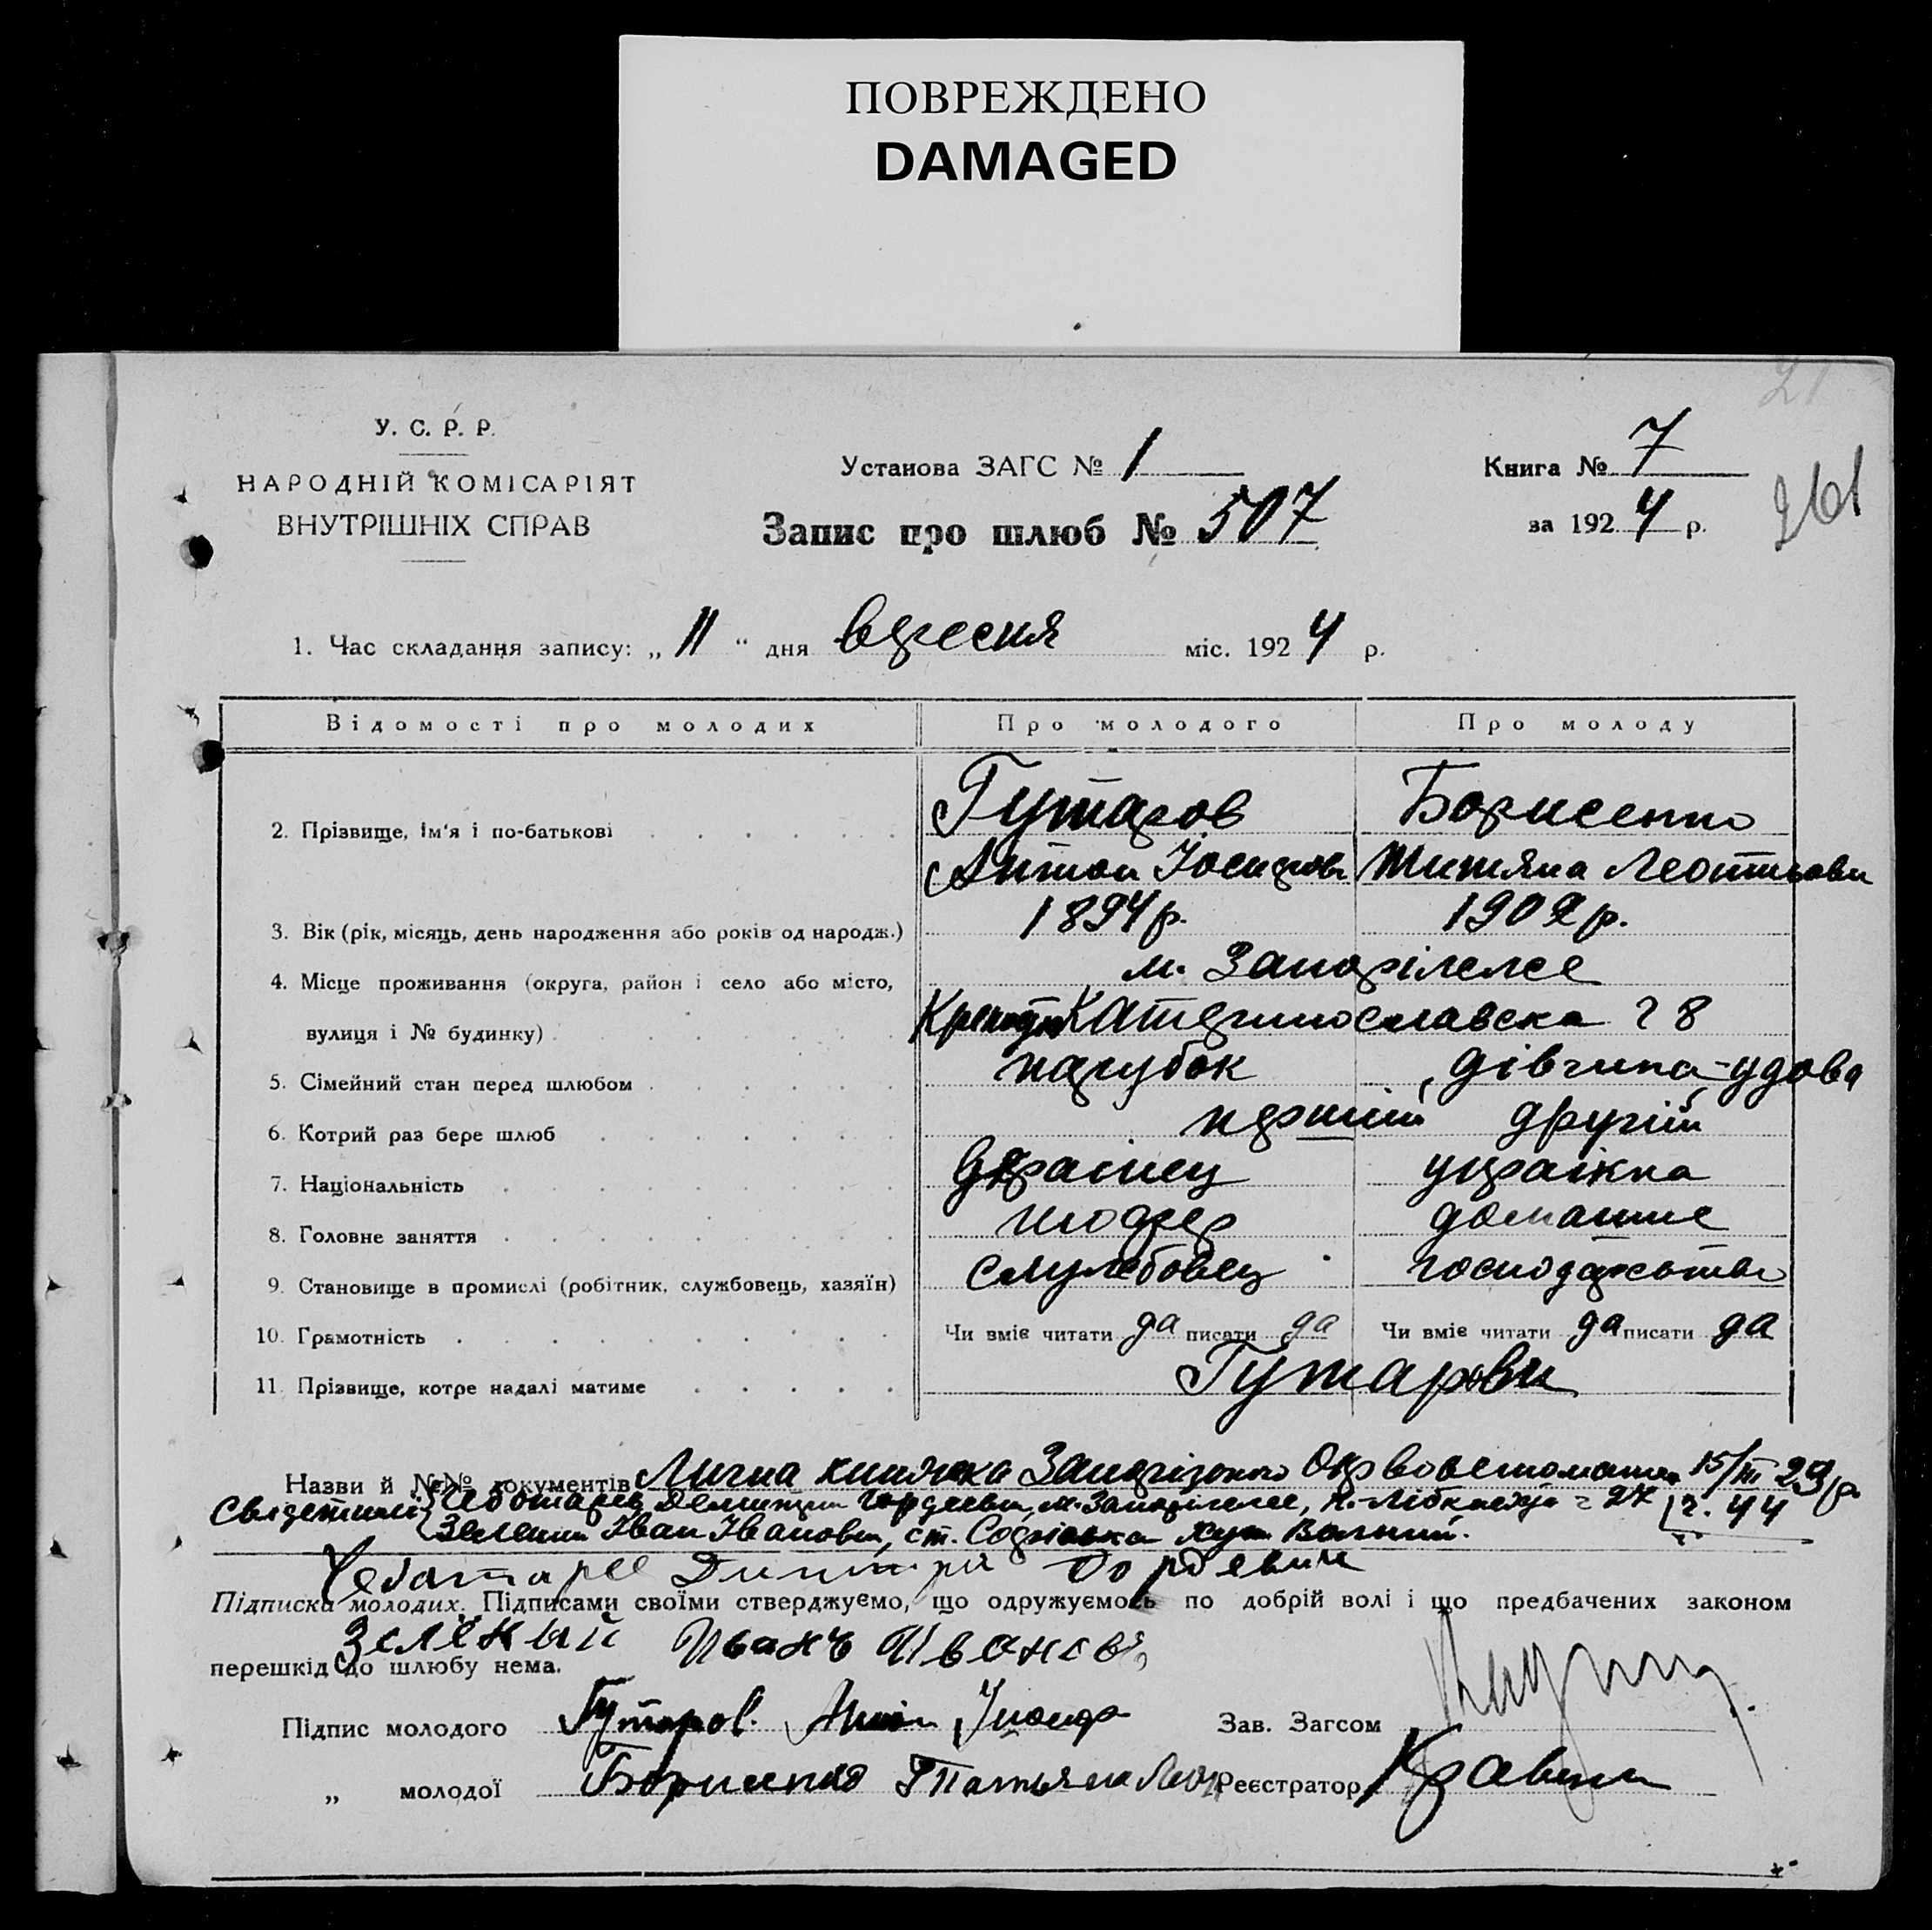 ПОВРЕЖДЕНО
DAMAGED
У. С. Р. Р.
НАРОДНІЙ КОМІСАРІЯТ
ВНУТРІШНІХ СПРАВ
Установа ЗАГС № 1
Запис про шлюб № 507
Книга № 7
за 1924 р.
261
1. Час складання запису: „ 11 “ дня вересня міс. 1924 р.
Відомості про молодих Про молодого Про молоду
2. Прізвище, ім'я і по-батькові Гутаров Борисенко
Антон Йосипов Титяна Леонтьовн
3. Вік (рік, місяць, день народження або років од народж.) 1894 р. 1902 р.
4. Місце проживання (округа, район і село або місто, м. Запоріжжє
вулиця і № будинку) Катеринославска 28
5. Сімейний стан перед шлюбом парубок дівчина-удова
6. Котрий раз бере шлюб перший другий
7. Національність Українец українка
8. Головне заняття шофер домашнє
9. Становище в промислі (робітник, службовець, хазяїн) службовец господарство
10. Грамотність Чи вміє читати да писати да Чи вміє читати да писати да
11. Прізвище, котре надалі матиме Гутарови
Назви й №№ документів Лична книжка Запорізького Окрвоенкомата 15/III 23 р.
Свідетилі Чеботарев Демитрий Гордеевич, м. Запоріжжє, 27 ч. 44
Зелений Іван Іванович, ст. Софіівка хут. Вольний.
Чеботарев Дмитрий Гордевич
Підписка молодих. Підписами своїми стверджуємо, що одружуємось по добрій волі і що предбачених законом
Зелёный Иванъ Иванов
перешкід до шлюбу нема.
Підпис молодого Гутаров Антон Іосиф Зав. Загсом
„ молодої Борисенко Татьяна Леон Реєстратор